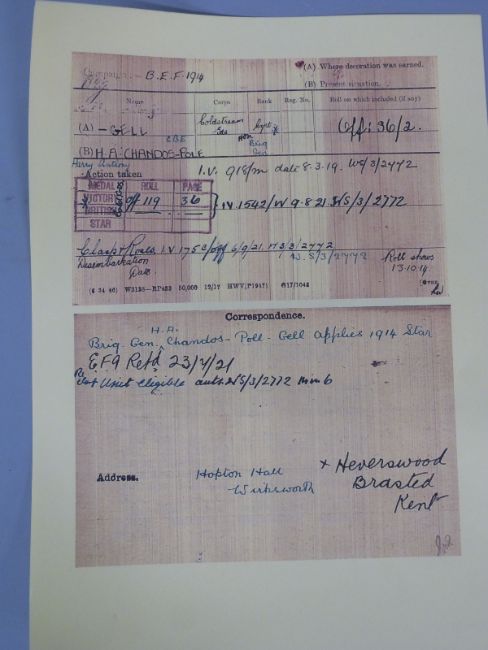 B.E.F. 1914
(A) Where decoration was earned.
(B) Present situation.
Name Corps Rank Reg. No. Roll on which included (if any)
(A) - GELL Coldstream Gds Capt Off: 36/2.
CBE Hon Brig Gen
(B) H.A. CHANDOS-POLE
Harry Anthony
Action taken I.V. 918/m date 8.3.19. WS/3/2772
MEDAL ROLL PAGE
VICTORY off 119 36
BRITISH
STAR
IV 1542/W 9.8.21 NS/3/2772
Clasp & Roses I.V 175 6/9/21
Disembarkation Date. Roll shows 13.10.14
(6 34 46) W3158-RP483 50,000 12/17 HWV(P1947) G17/1046
Correspondence.
H.A.
Brig. Gen. Chandos-Poll-Gell applies 1914 Star
EF9 Retd 23/7/21
Unit Eligible auth NS/3/2772 min 6
Address. Hopton Hall
Wirksworth
x Heverswood
Brasted
Kent